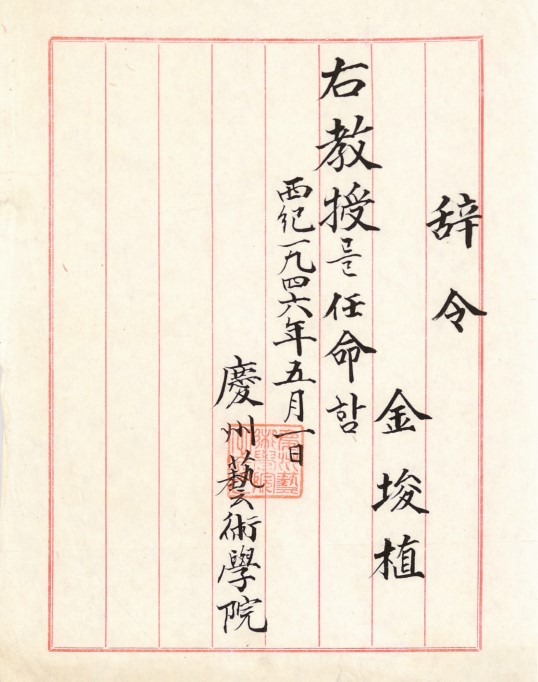 辞令
金埈植
右教授를任命함
西紀一九四六年五月一日
慶州藝術學院